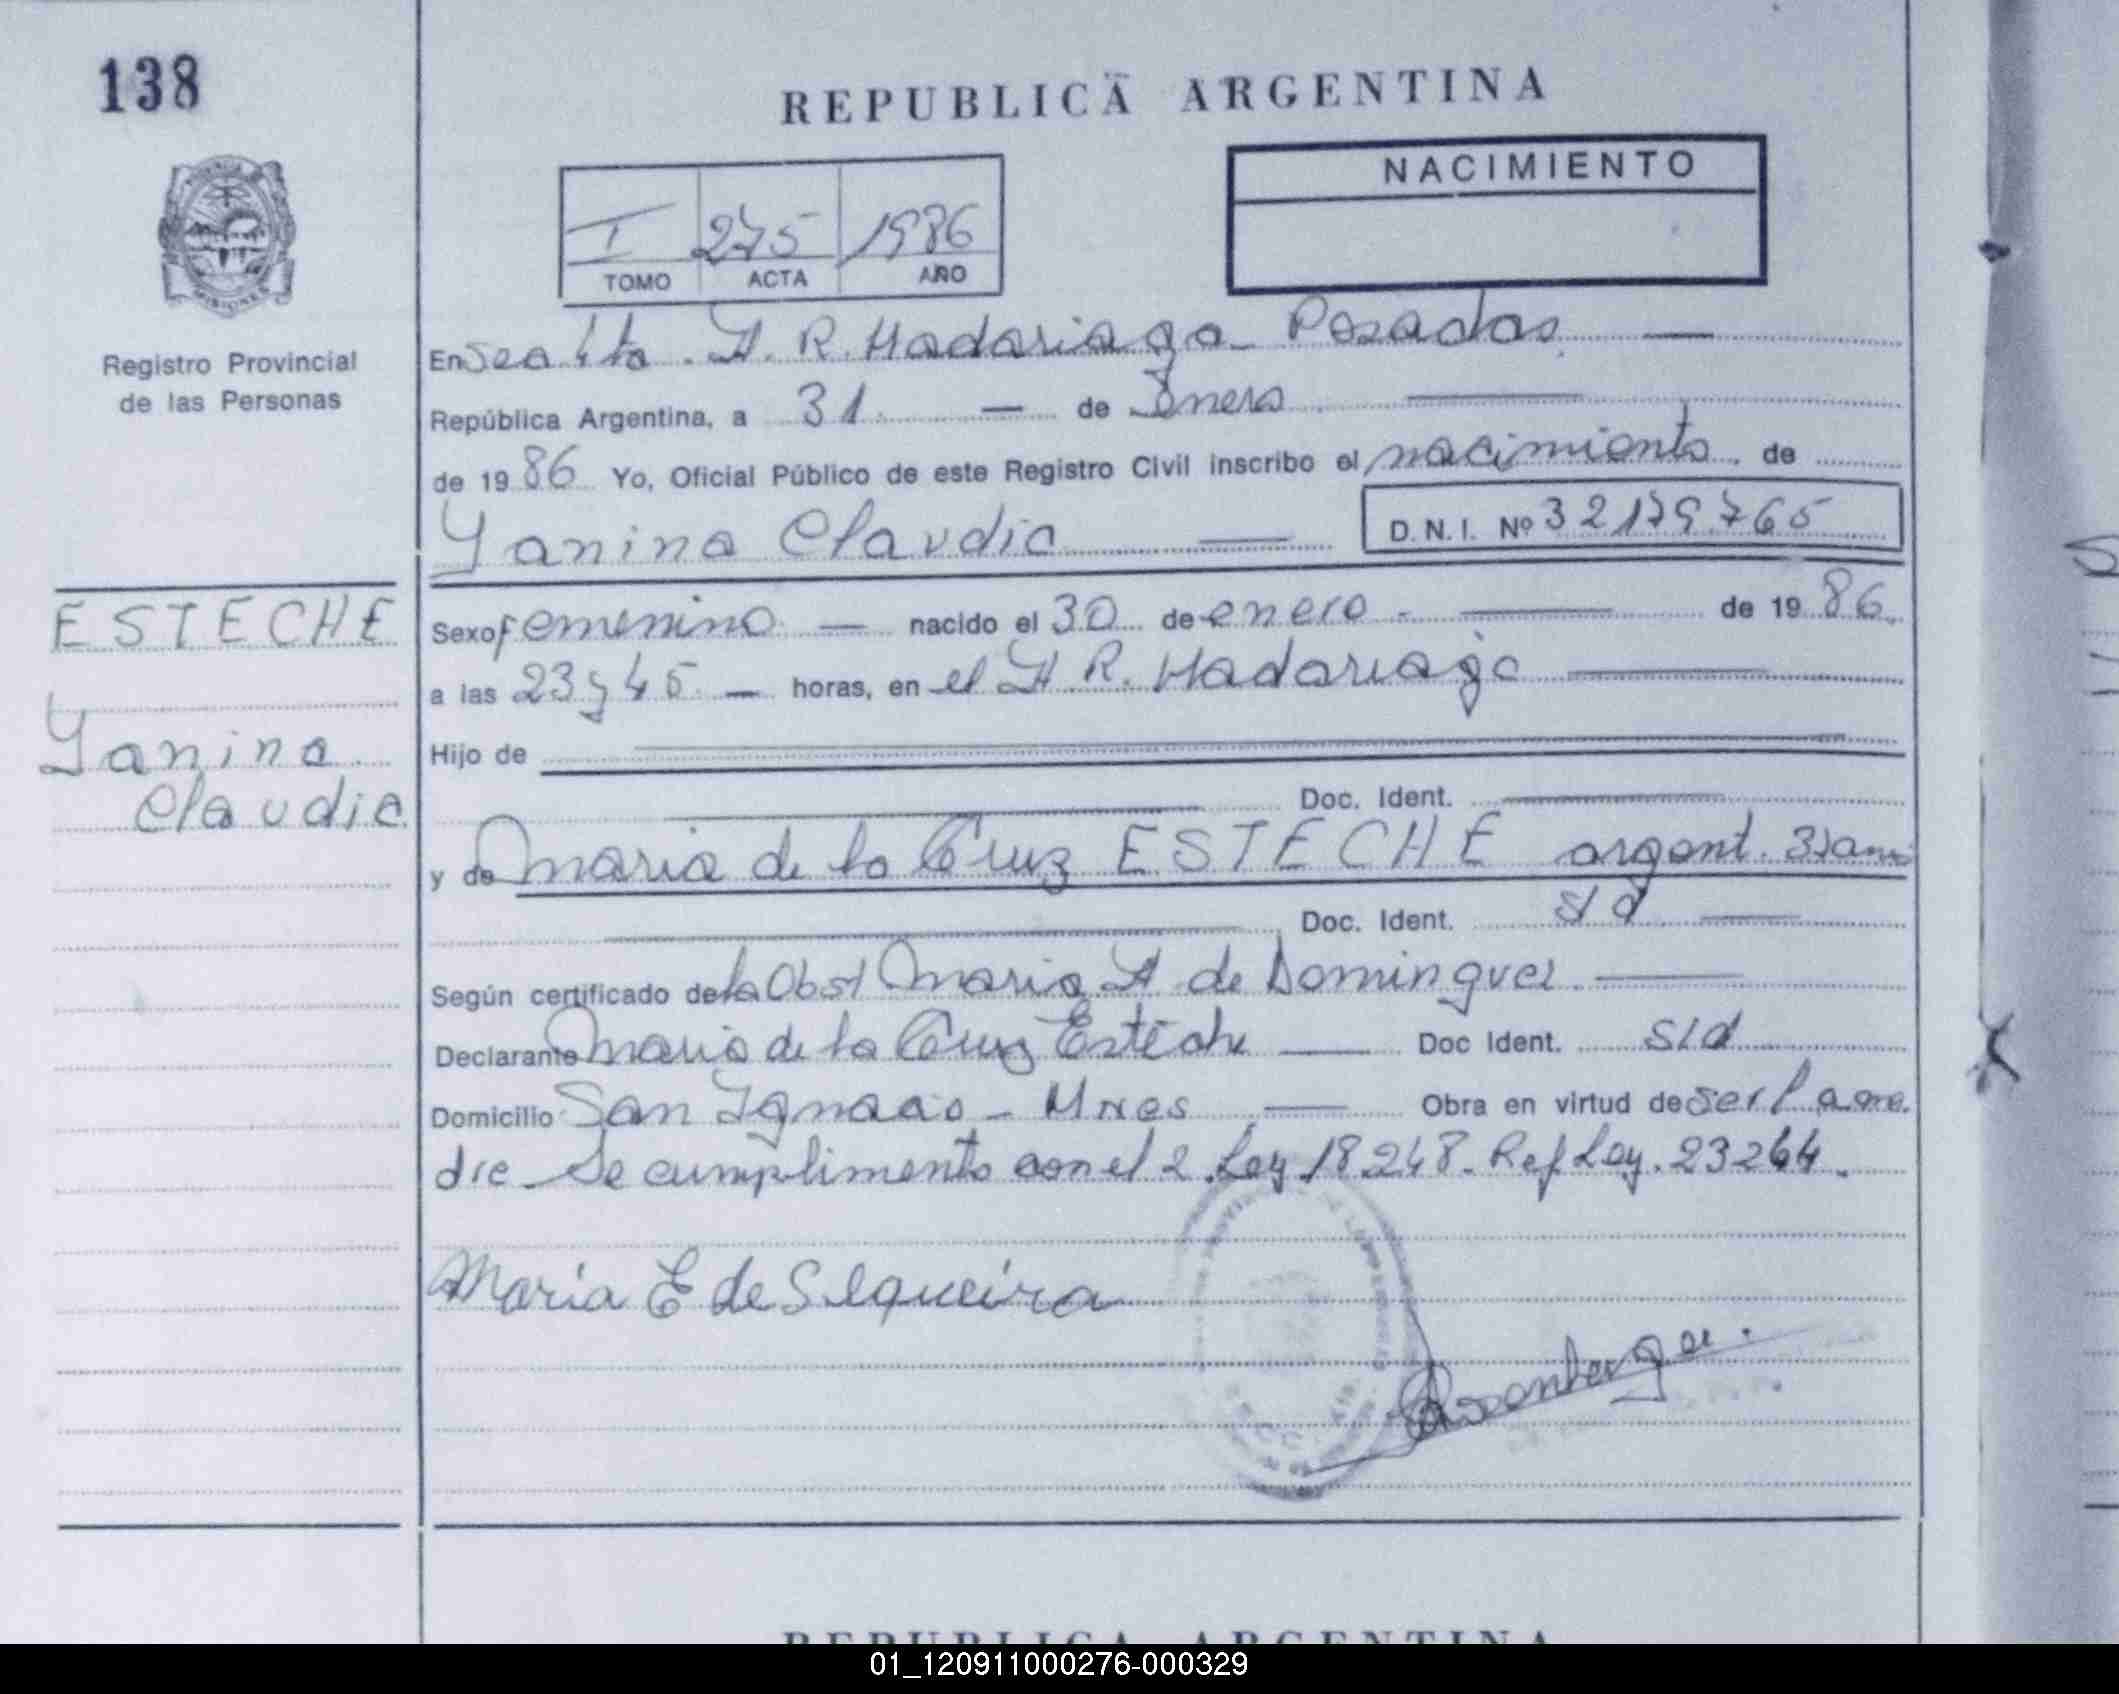 138
REPUBLICA ARGENTINA
NACIMIENTO
I 275 1986
TOMO ACTA AÑO
MISIONES
Registro Provincial
de las Personas
En Sec 4ta. H. R. Madariaga - Posadas
República Argentina, a 31 de Enero
de 1986 Yo, Oficial Público de este Registro Civil inscribo el nacimiento de
Yanina Claudia D.N.I. Nº 32179765
ESTECHE
Yanina
Claudia
Sexo femenino nacido el 30 de enero de 1986.
a las 23 y 45 horas, en el H R. Madariaga
Hijo de
Doc. Ident.
y de Maria de la Cruz ESTECHE argent. años
Doc. Ident. s/d
Según certificado de la Obst Maria H de Dominguez
Declarante Maria de la Cruz Esteche Doc Ident. s/d
Domicilio San Ignacio - Mnes Obra en virtud de ser la ma
dre. Se cumplimento con el 2 Ley 18248. Ref Ley. 23264.
Maria E de Sequeira
REPUBLICA ARGENTINA
01_120911000276-000329